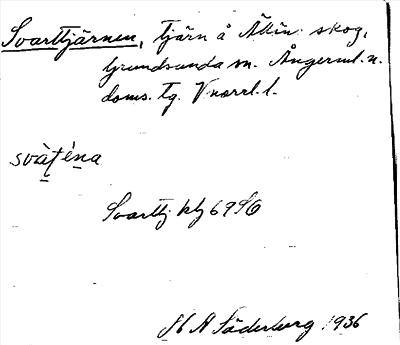 Svarttjärnen, tjärn å Älin: skog,
Grundsunda sn. Ångerml. n.
doms. tg. Vnorrl. l.
svàt̯éṇa
Svarttj kbl 69 SO
H A Söderberg 1936